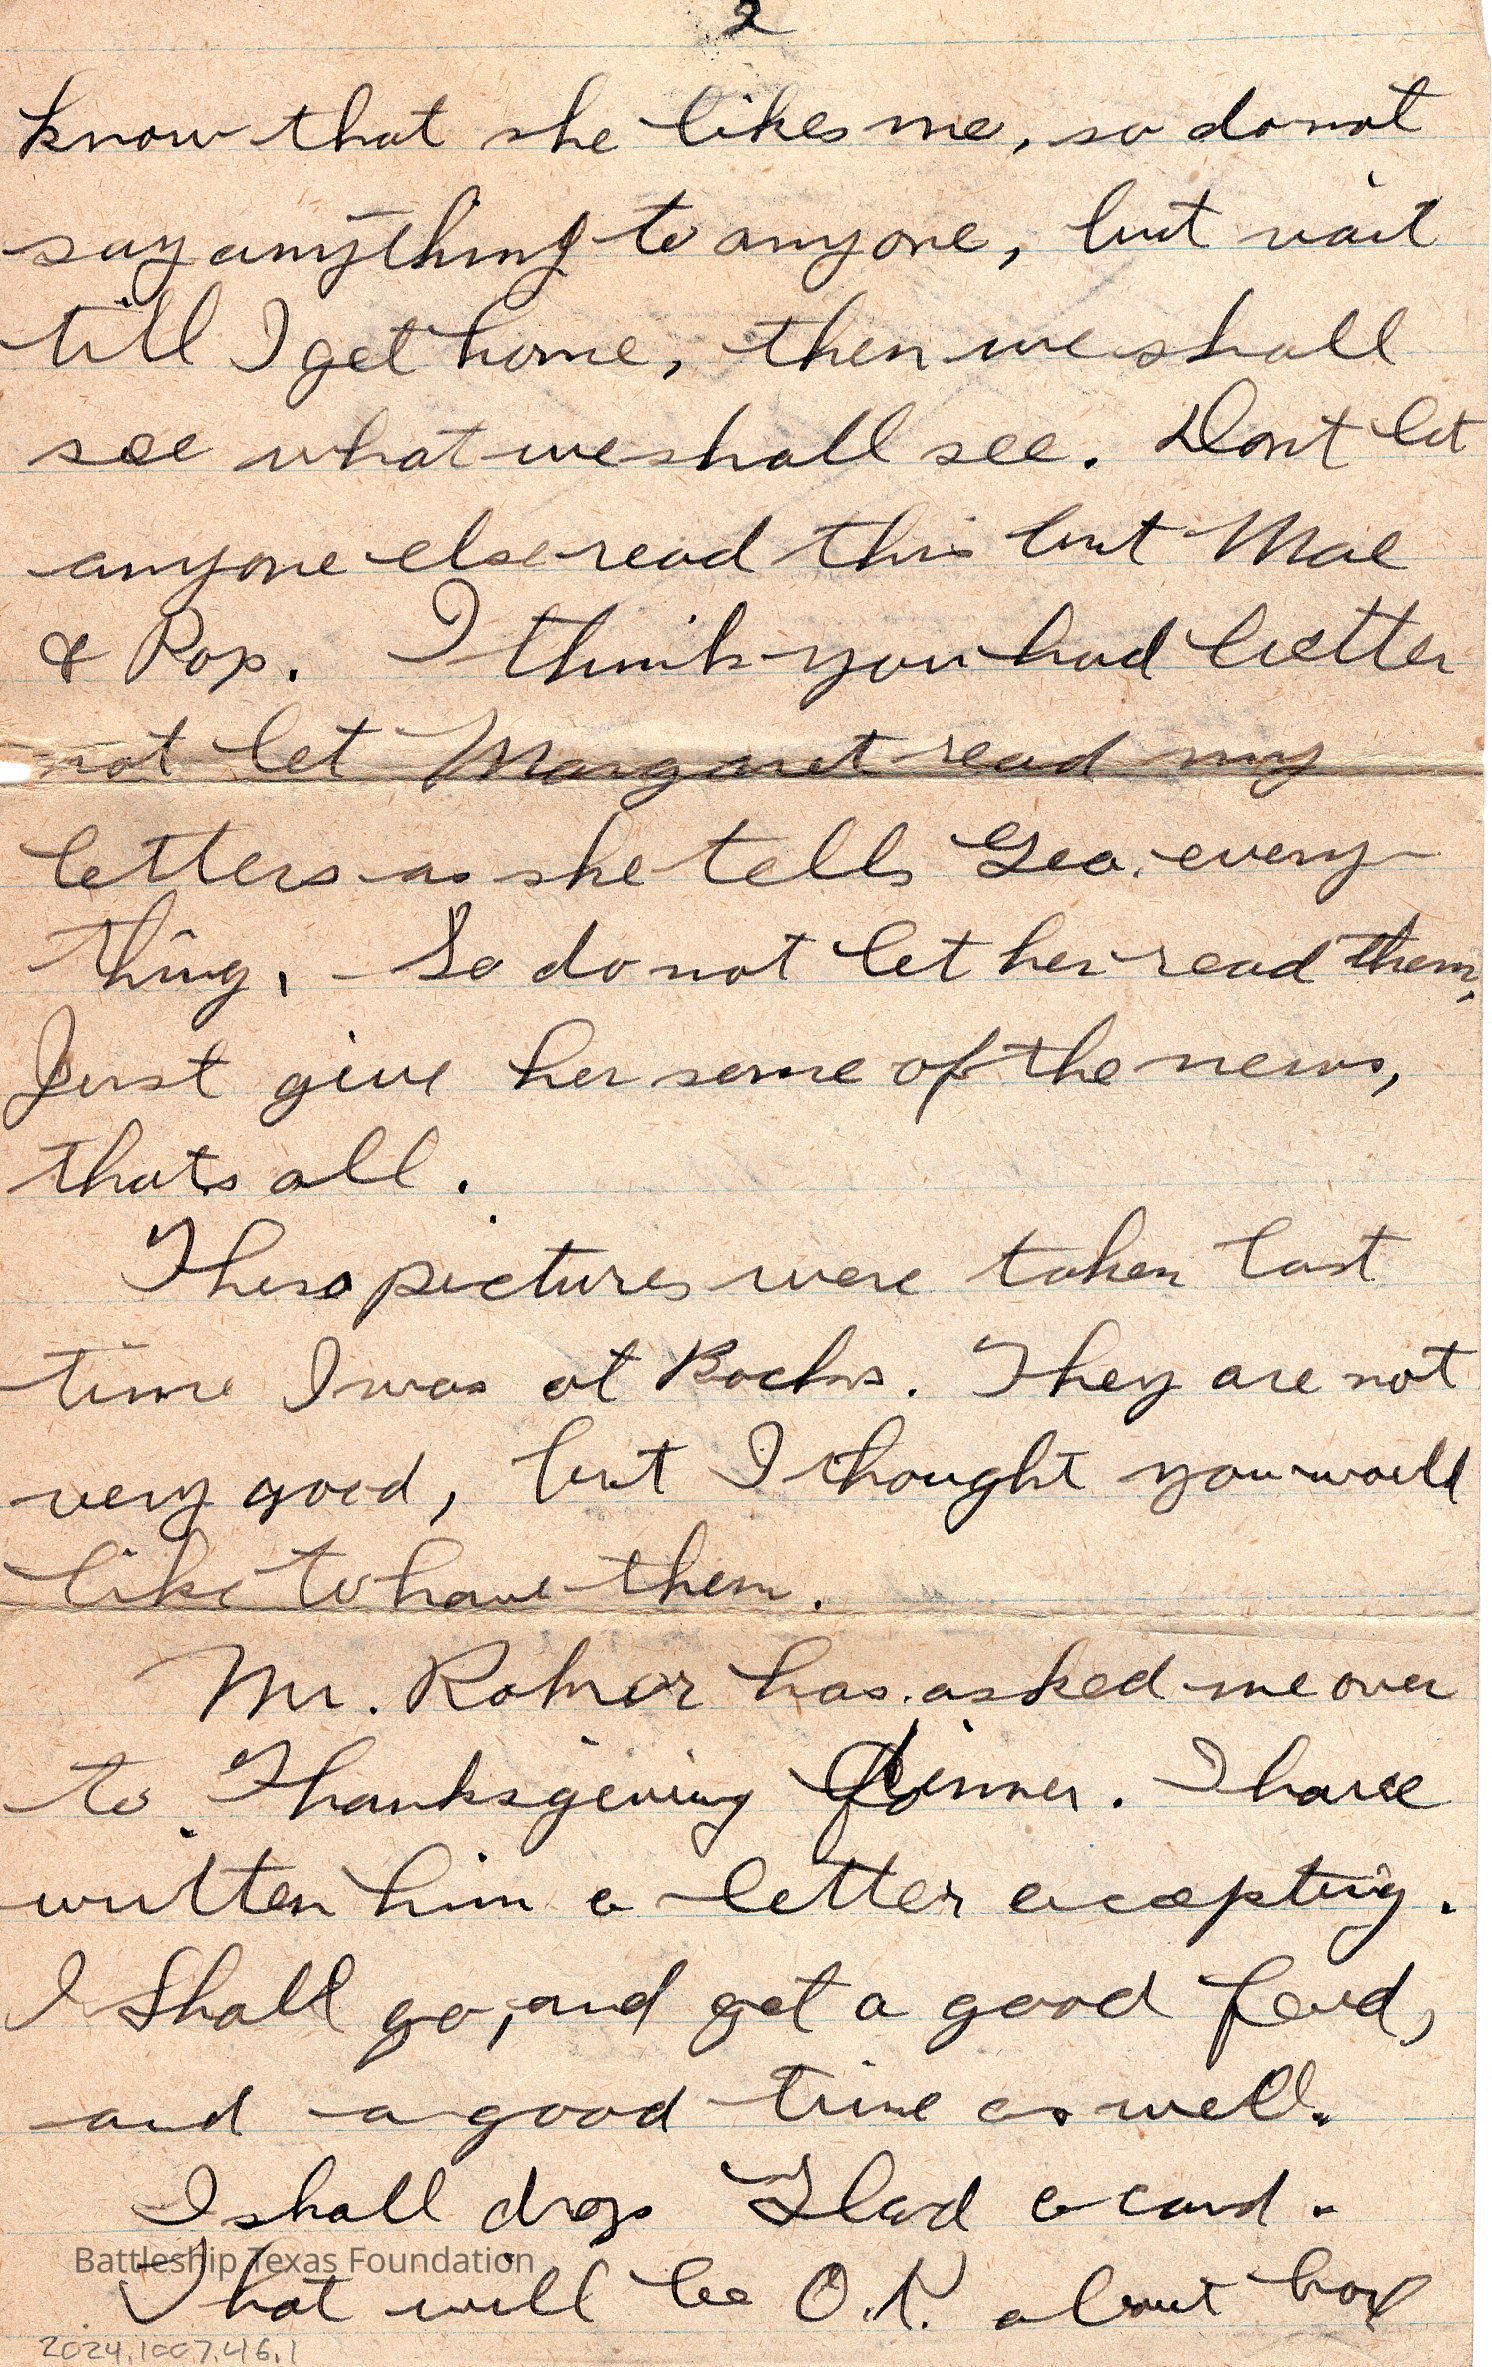 2
know that she likes me, so do not
say anything to anyone, but wait
till I get home, then we shall
see what we shall see. Dont let
anyone else read this but Mae
& Pop. I think you had better
not let Margaret read my
letters as she tells Geo. every-
thing. So do not let her read them,
Just give her some of the news,
thats all.
These pictures were taken last
time I was at Bochs. They are not
very good, but I thought you would
like to have them.
Mr. Rohrer has asked me over
to Thanksgiving dinner. I have
written him a letter accepting.
I shall go, and get a good feed,
and a good time as well.
I shall drop Glad a card.
Battleship Texas Foundation
That will be O.K. about box
2024.1007.46.1